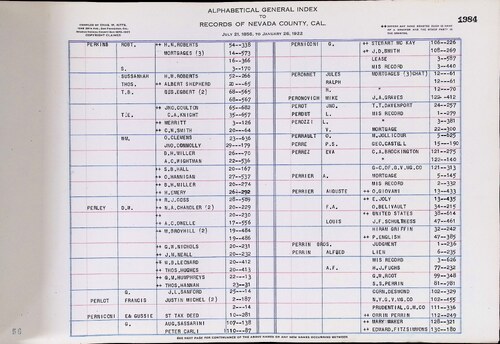 ALPHABETICAL GENERAL INDEX
TO
RECORDS OF NEVADA COUNTY, CAL.
JULY 21, 1856, TO JANUARY 28, 1932
1984
PERKINS ROBT. ++ H.N. ROBERTS 54--338
MORTGAGES (3) 14--573
16--366
D. 3--170
SUSANNAH ++ H.N. ROBERTS 52--266
THOS. ++ ALBERT SHEPHERD 20--65
T.S. ++ SIZ. EGBERT (2) 68--565
68--567
++ JNO. COULTON 65--682
T.E. C.A. KNIGHT 35--657
++ MERRITT 3--126
++ C.W. SMITH 20--64
WM. O. CLEMENS 23--636
JNO. CONNOLLY 29--179
B.H. MILLER 26--70
A.C. WIGHTMAN 22--536
++ B.B. HALL 20--167
++ O. HANNIGAN 27--537
++ B.H. MILLER 20--274
++ H. EMERY 26--292
++ R.J. GOSS 28--589
PERLEY D.W. ++ N.A. CHANDLER (2) 20--229
++ 20--230
++ A.C. ORELLE 17--556
++ M. BROVHILL (2) 19--484
++ 19--486
++ G.W. NICHOLS 20--231
++ J.H. NEALL 20--232
++ W.B. LEONARD 20--412
++ THOS. HUGHES 20--413
++ G.W. HUMPHREYS 22--13
++ THOS. HANNAH 23--31
G. ++ J.L. SANFORD 25--14
PERLOT FRANCIS JUSTIN MICHEL (2) 2--187
2--14
PERNICONI EA GUSSIE ST TAX DEED 10--281
G. AUG. SASSARINI 107--138
PETER CARLI 110--87
PERNICONI G. ++ STEWART MC KAY 166--226
++ J.D. SMITH 108--269
LEASE 3--587
MIS RECORD 3--440
PERONNET JULES MORTGAGES (3)(CHAT) 12--61
RALPH 12--61
H. 12--70
PERONOVICH MIKE J.A. GRAVES 122--412
PEROT JNO. T.T. DAVENPORT 24--257
PERDUT L. MIS RECORD 1--279
PEROZZI L. 3--381
V. MORTGAGE 22--300
PERRAULT O. M. JOLLICOUR 3--625
PERRE P.S. GEO. CASTLE 15--190
PERREZ EVA C.A. BROCKINGTON 121--275
120--140
G-C. OF G.V. UG CO 121--313
PERRIER A. MORTGAGE 5--145
MIS RECORD 2--332
PERRIER AUGUSTE ++ O. GIOVANI 13--433
++ E. JOLY 13--435
F.A. O. BELIVAULT 34--215
++ UNITED STATES 38--614
LOUIS J.F. SCHULTRESS 47--461
HIRAM GRIFFIN 32--242
++ P. ENGLISH 47--385
PERRIN BROS. JUDGMENT 1--236
PERRIN ALFRED LIEN 6--235
MIS RECORD 3--626
A.F. H.J. FUGHS 77--232
G.W. ROOT 99--348
S.S. PERRIN 81--781
CORN. DESMOND 102--329
N.Y.G.V. UG CO 102--555
PRUDENTIAL G.M CO 111--336
++ ORRIN PERRIN 112--249
++ MARY MAHER 128--321
++ EDWARD. FITZSIMMONS 130--180